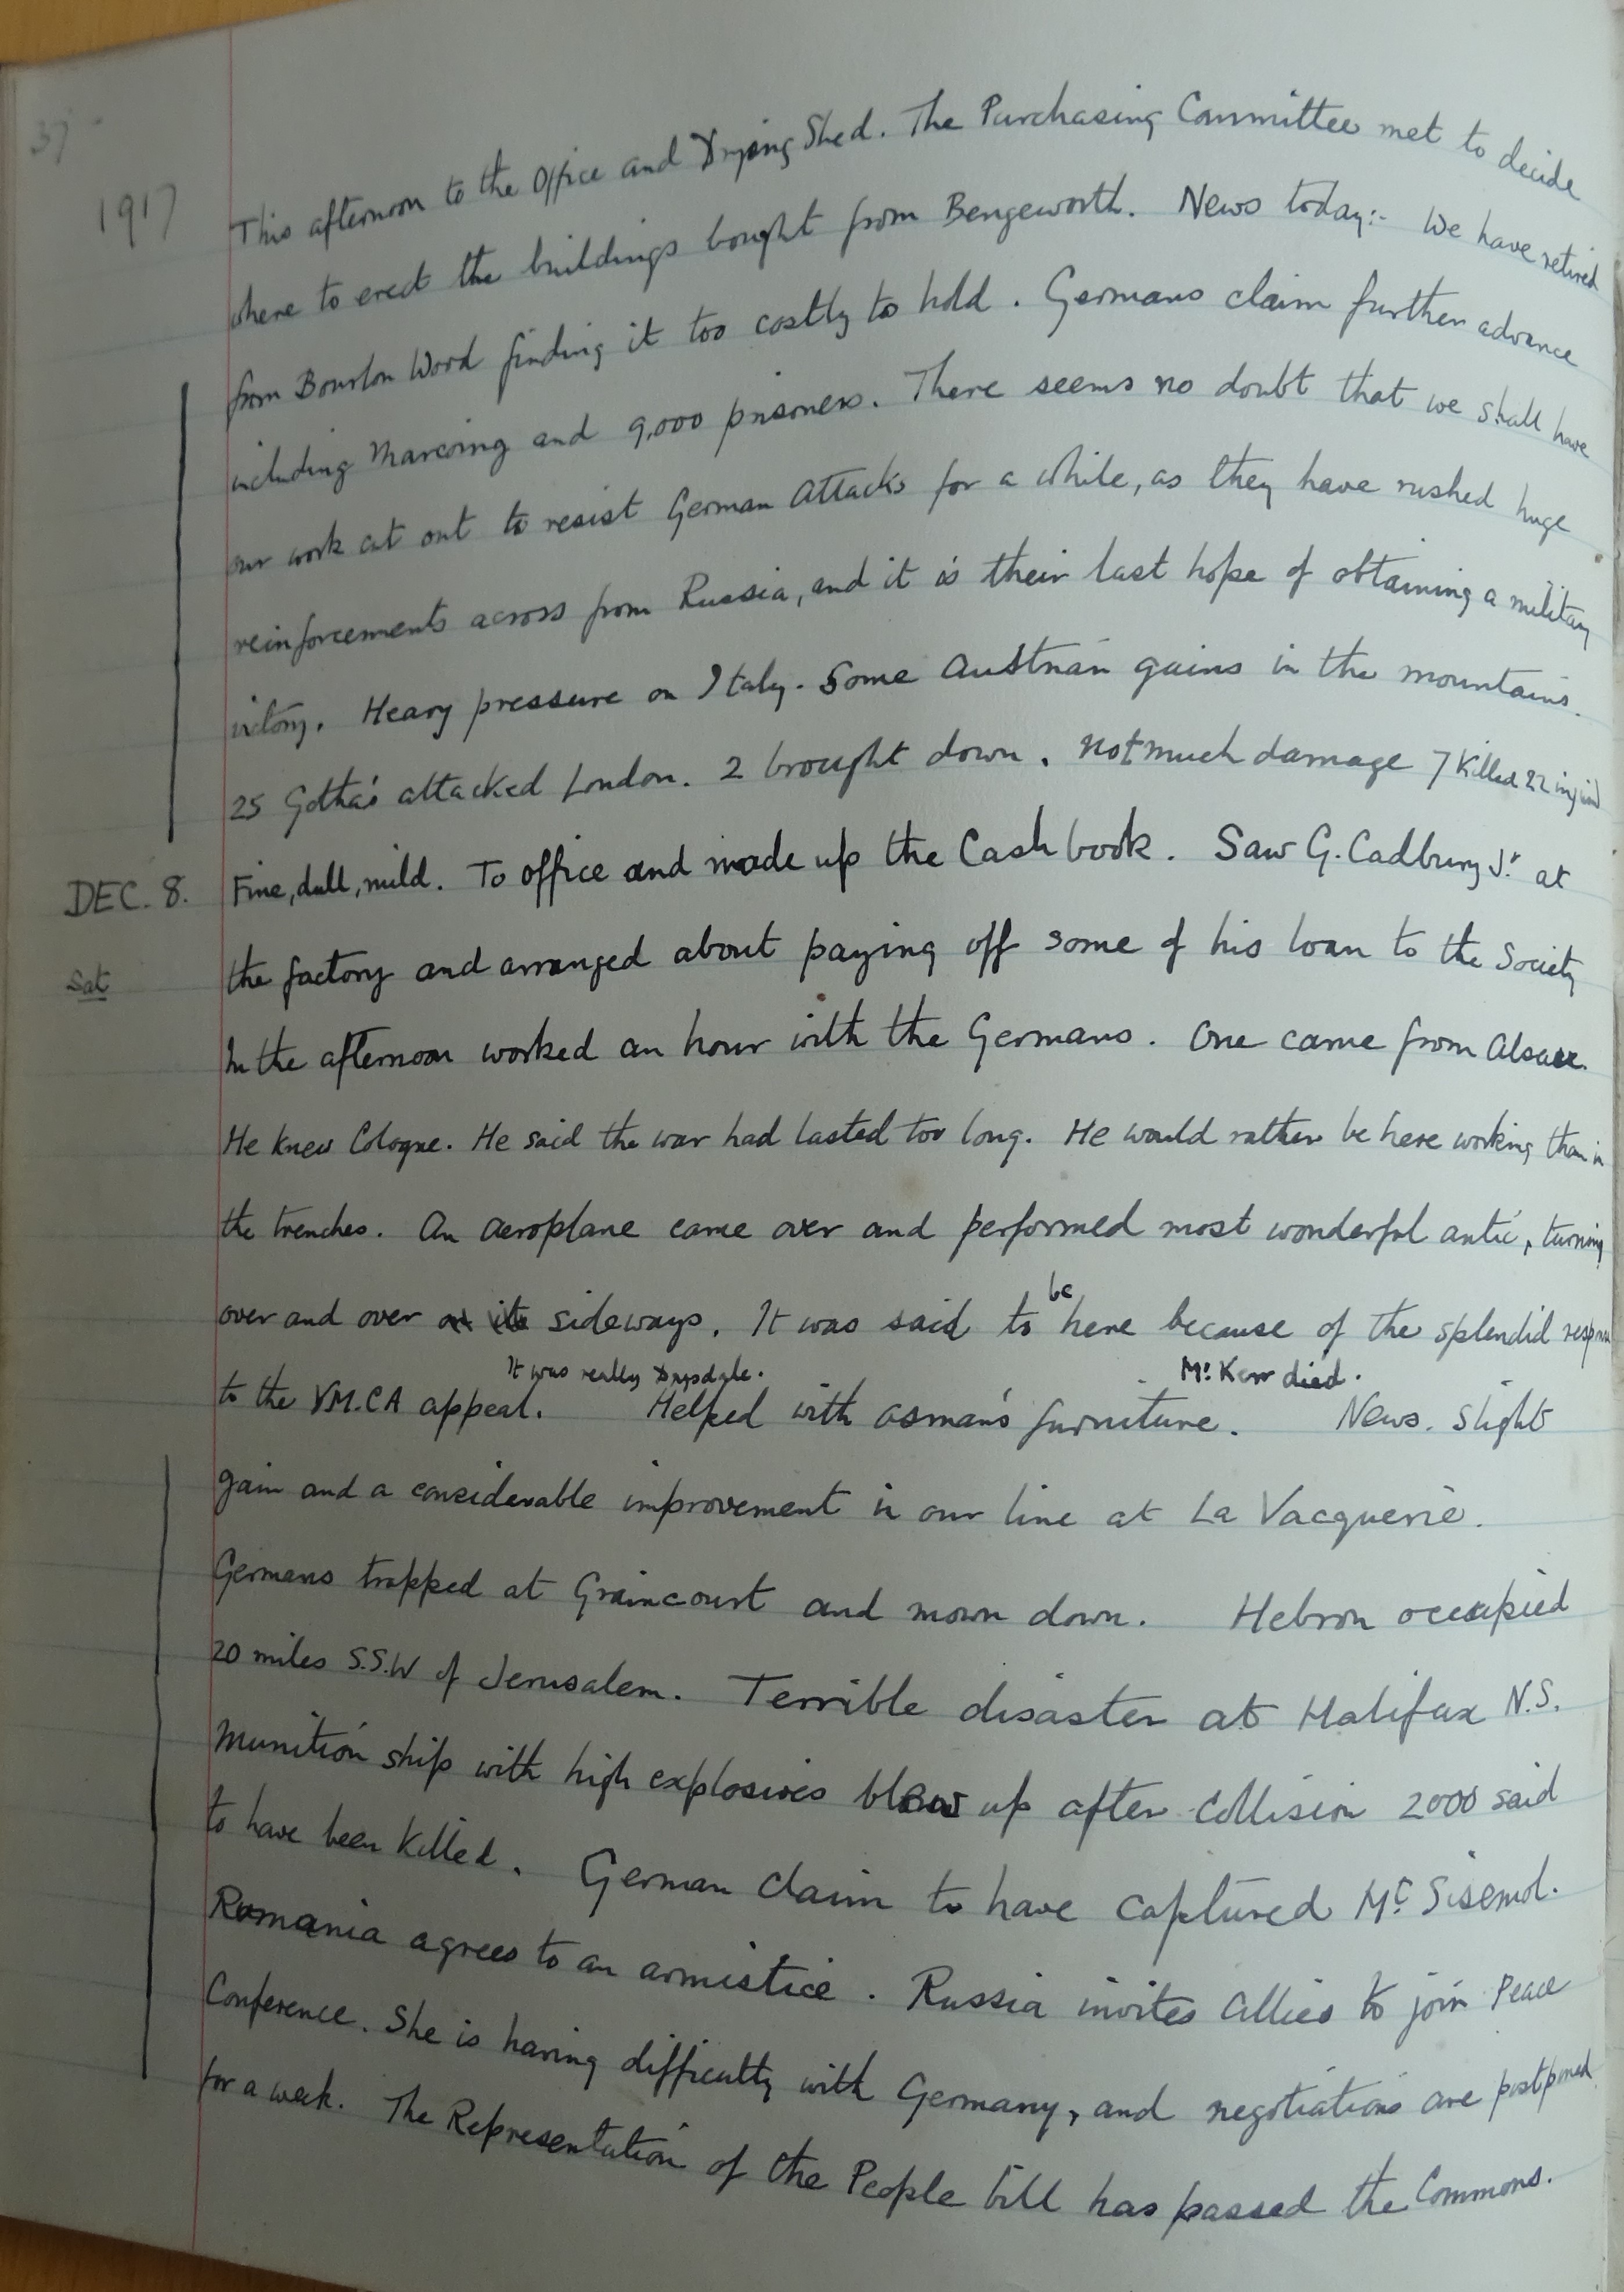 37
1917
This afternoon to the Office and Drying Shed. The Purchasing Committee met to decide
where to erect the buildings bought from Bengeworth. News today:- We have retired
from Bourlon Wood finding it too costly to hold. Germans claim further advance
including Marcoing and 9,000 prisoners. There seems no doubt that we shall have
our work cut out to resist German Attacks for a while, as they have rushed huge
reinforcements across from Russia, and it is their last hope of obtaining a military
victory. Heavy pressure on Italy. Some Austrian gains in the mountains.
25 Gotha's attacked London. 2 brought down. Not much damage 7 killed 22 injured
DEC. 8. Fine, dull, mild. To office and made up the Cash book. Saw G. Cadbury Jr. at
Sat the factory and arranged about paying off some of his loan to the Society
In the afternoon worked an hour with the Germans. One came from Alsace.
He knew Cologne. He said the war had lasted too long. He would rather be here working than in
the trenches. An aeroplane came over and performed most wonderful antic, turning
over and over sideways. It was said to be here because of the splendid response
to the Y.M.C.A appeal. It was really Drysdale. Helped with Asman's furniture. Mr. Kerr died. News. Slight
gain and a considerable improvement in our line at La Vacquerie.
Germans trapped at Graincourt and mown down. Hebron occupied
20 miles S.S.W of Jerusalem. Terrible disaster at Halifax N.S.
Munition ship with high explosives blew up after collision 2000 said
to have been killed. German claim to have captured Mt. Sisemol.
Romania agrees to an armistice. Russia invites Allies to join Peace
Conference. She is having difficulty with Germany, and negotiations are postponed
for a week. The Representation of the People bill has passed the Commons.